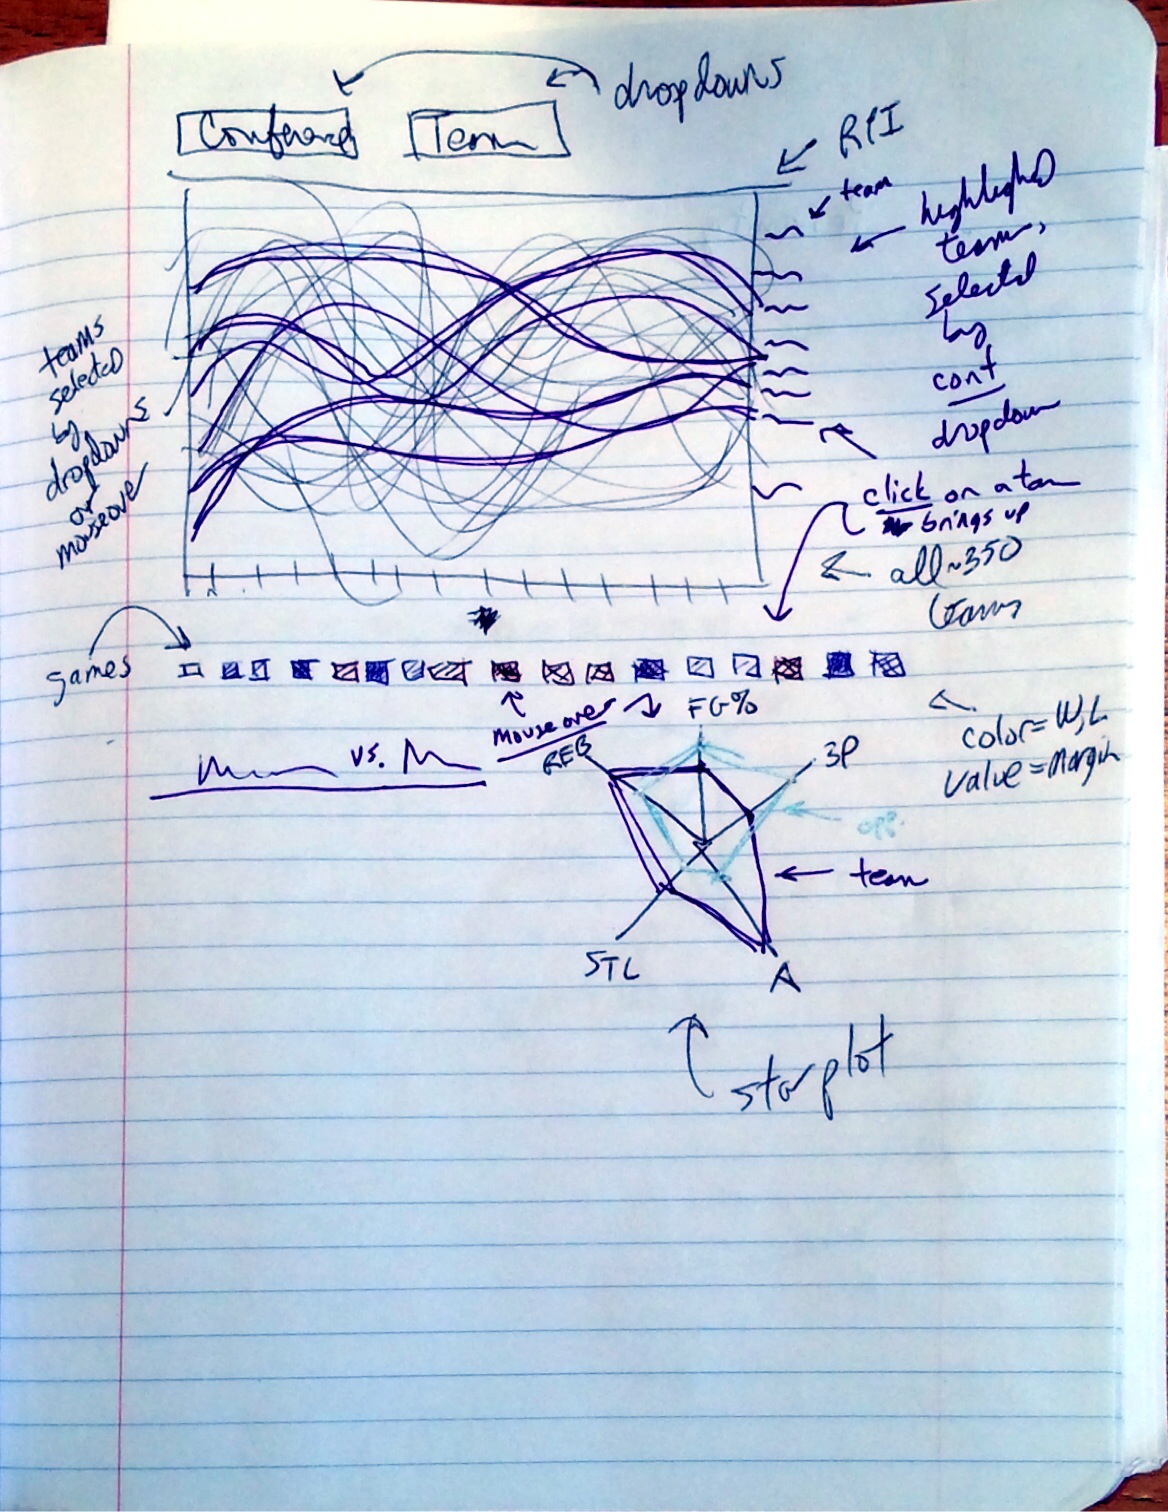 dropdowns
Conference
Team
RPI
team
highlighted
team,
selected
by
conf
dropdown
teams
selected
by
dropdowns
or
mouseover
click on a team
brings up
all ~350
teams
games
mouseover
vs.
FG%
REB
3P
color = W, L
value = margin
opp.
team
STL
A
star plot